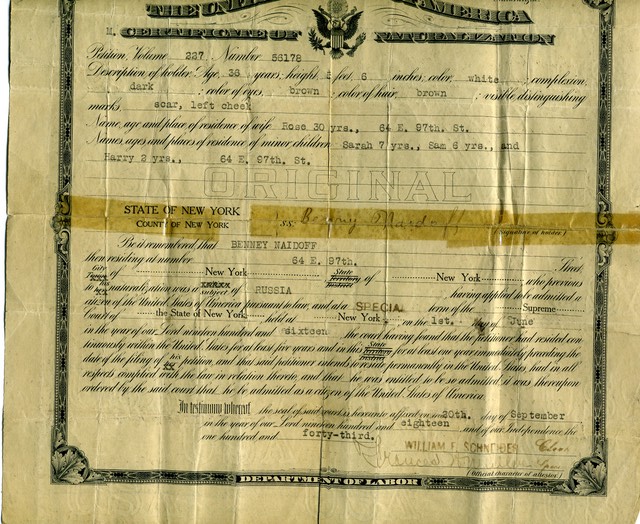 THE UNITED STATES OF AMERICA
CERTIFICATE OF NATURALIZATION
Petition, Volume 227 Number 56178
Description of holder: Age, 38 years; height, 5 feet, 6 inches; color, white; complexion,
dark; color of eyes, brown; color of hair, brown; visible distinguishing
marks, scar, left cheek
Name, age and place of residence of wife Rose 30 yrs., 64 E. 97th. St.
Names, ages and places of residence of minor children Sarah 7 yrs., Sam 6 yrs., and
Harry 2 yrs., 64 E. 97th. St.
ORIGINAL
STATE OF NEW YORK
COUNTY OF NEW YORK
s.s. Benney Naidoff
(Signature of holder)
Be it remembered that BENNEY NAIDOFF
then residing at number 64 E. 97th. Street
City of New York State Territory District of New York, who previous
to his naturalization was a subject of RUSSIA, having applied to be admitted a
citizen of the United States of America pursuant to law, and at a SPECIAL term of the Supreme
Court of the State of New York held at New York on the 1st. day of June
in the year of our Lord nineteen hundred and sixteen the court having found that the petitioner had resided con-
tinuously within the United States for at least five years and in this State Territory for at least one year immediately preceding the
date of the filing of his petition, and that said petitioner intends to reside permanently in the United States, had in all
respects complied with the law in relation thereto, and that he was entitled to be so admitted, it was thereupon
ordered by the said court that he be admitted as a citizen of the United States of America.
In testimony whereof the seal of said court is hereunto affixed on the 20th. day of September
in the year of our Lord nineteen hundred and eighteen and of our Independence the
one hundred and forty-third.
WILLIAM F. SCHNEIDER
(Official character of attestor)
DEPARTMENT OF LABOR